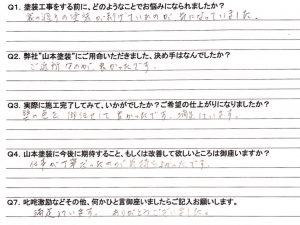 Q1. 塗装工事をする前に、どのようなことでお悩みになられましたか?
家の周りの塗装が剥げていたのが気になっていました。
Q2. 弊社"山本塗装"にご用命いただきました、決め手はなんでしたか?
ご近所なのが良かったです。
Q3. 実際に施工完了してみて、いかがでしたか?ご希望の仕上がりになりましたか?
壁の色を して良かったです。満足しています。
Q4. 山本塗装に今後に期待すること、もしくは改善して欲しいところは御座いますか?
仕事が丁寧だったのが気持ちよかったです。
Q7. 叱咤激励などその他、何かひと言御座いましたらご記入お願いします。
満足しています。 ありがとうございました。